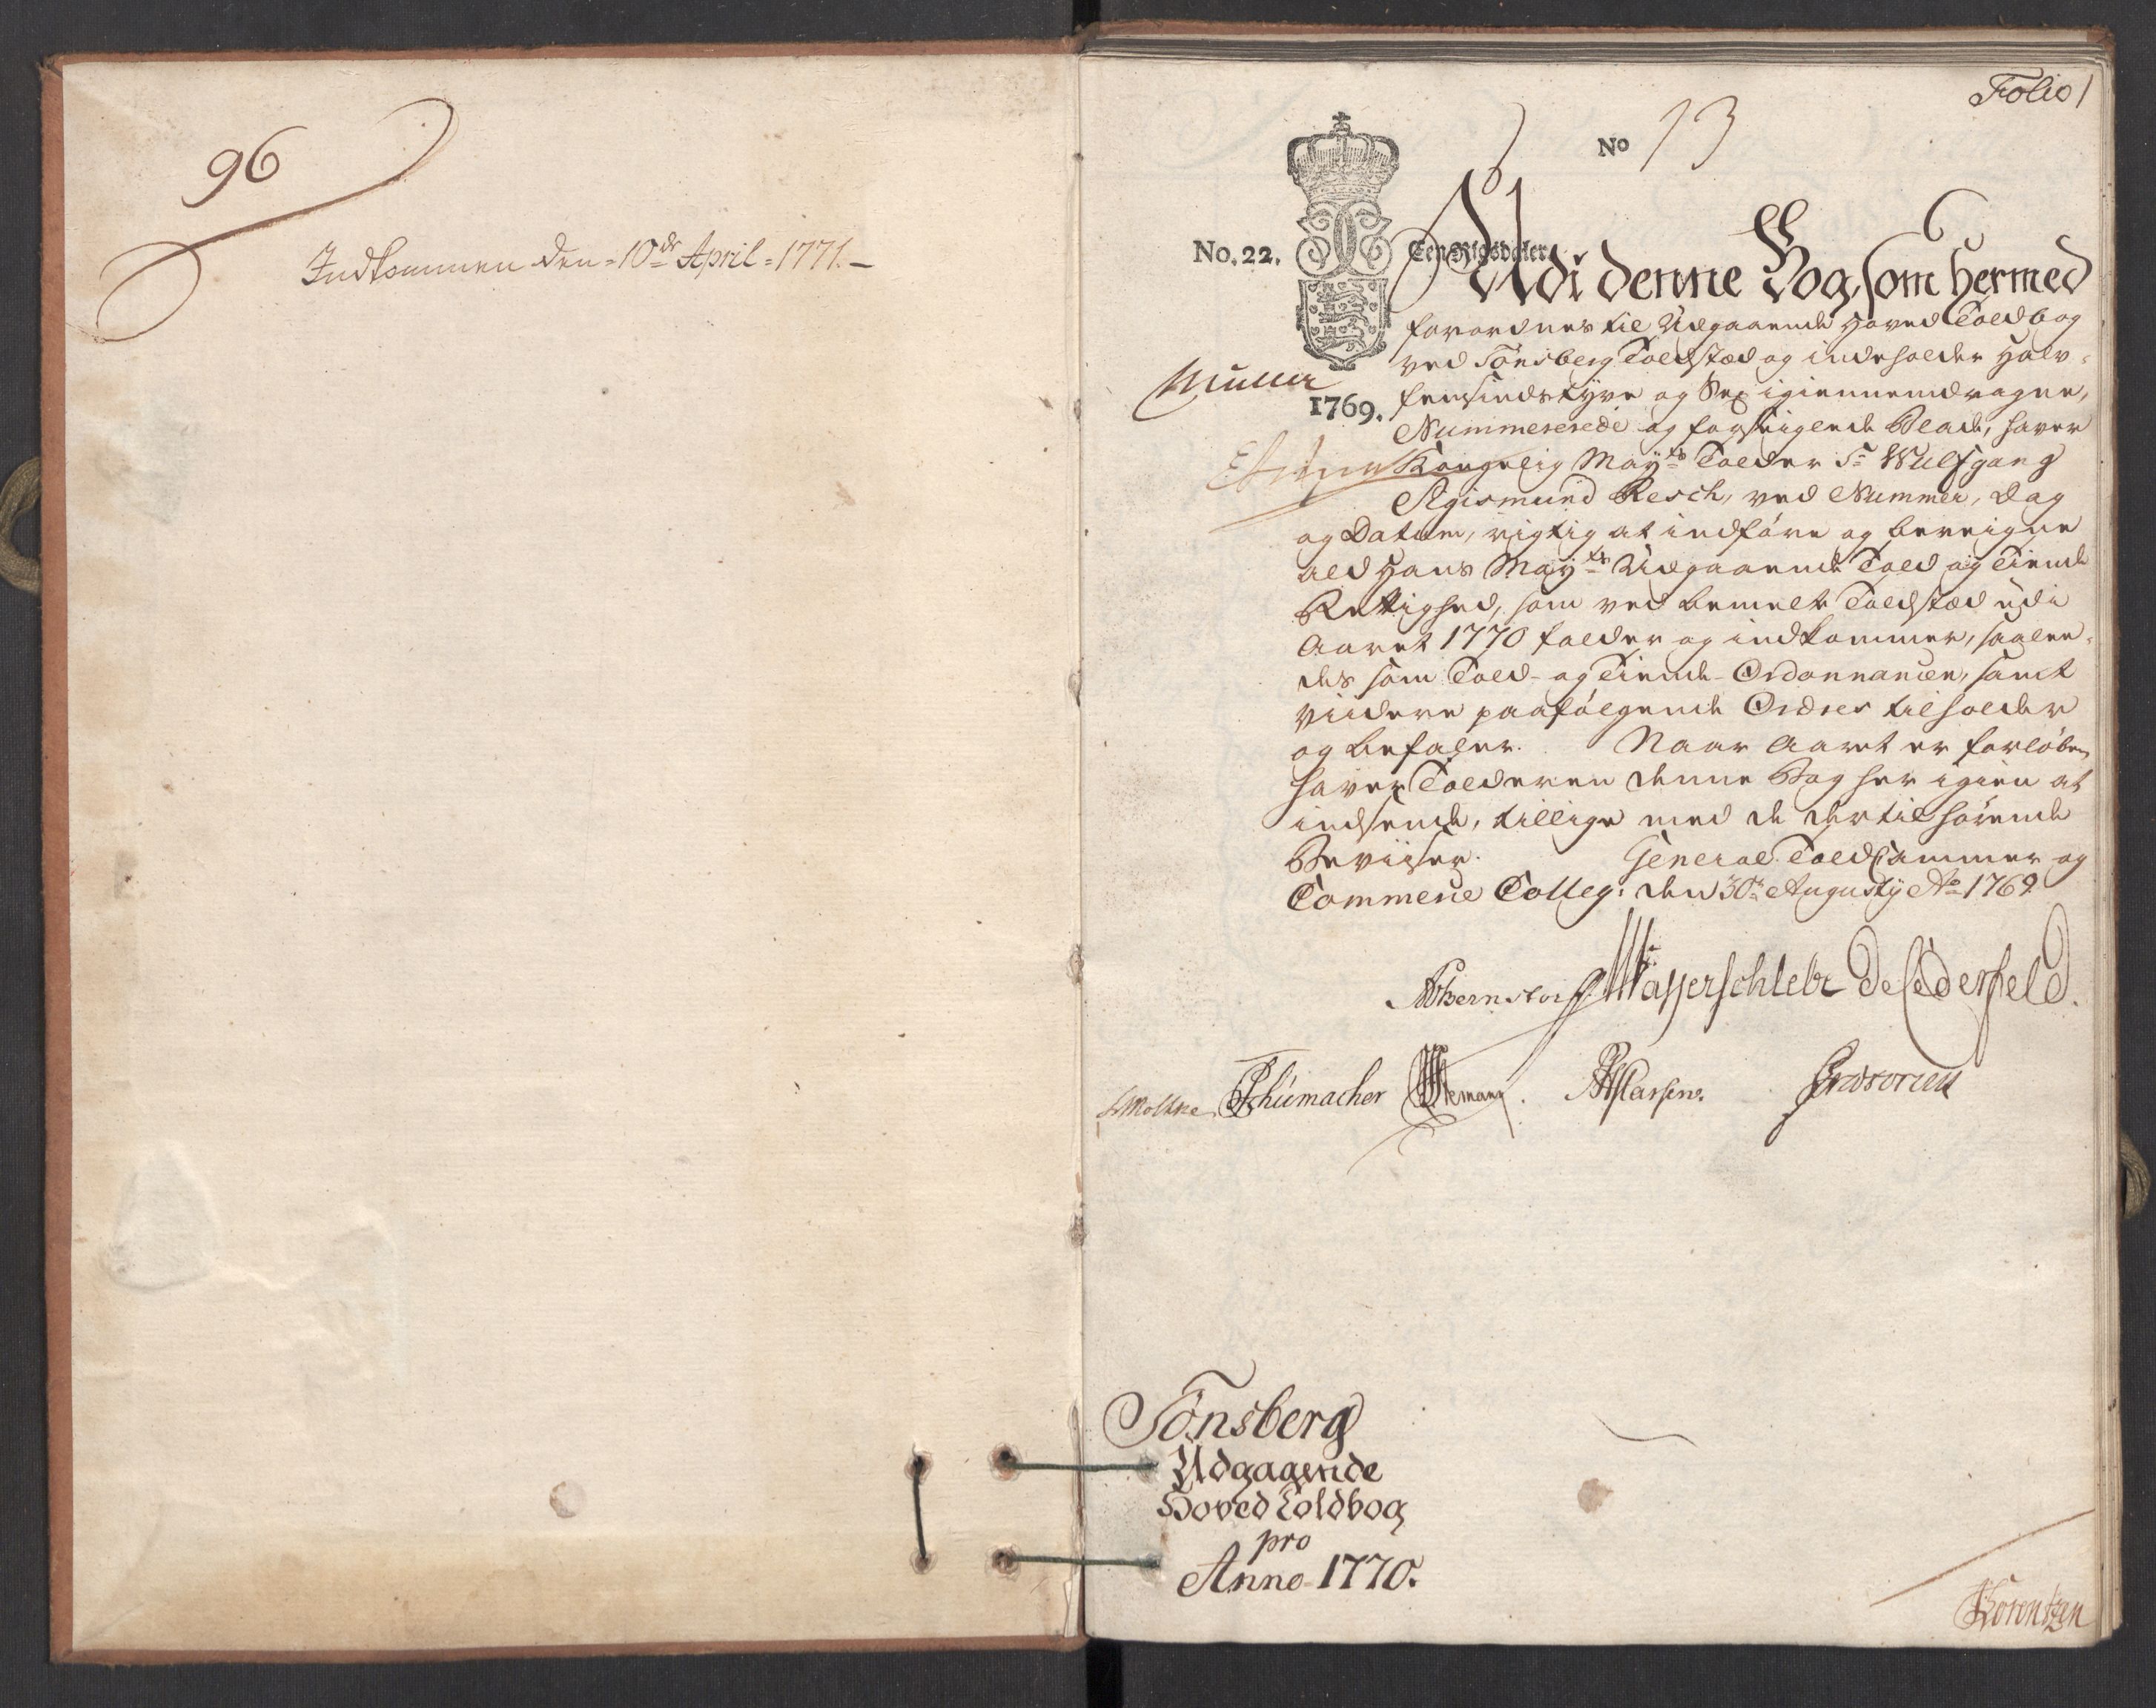 96
Indkommen den 10de April 1771.
Folio 1
No 13
No. 22.
Een Rigsdaler
1769.
Müller
Udi denne Bog, som hermed
forordnes til Udgaaende Hoved Toldbog
ved Tönsberg Toldstæd og indeholder Halv-
femsindstyve og Sex igiennemdragne,
Nummererede og forseiglede Blade, haver
Kongelig Mayts Tolder Sr Wulfgang
Sigismund Resch, ved Nummer, Dag
og Datum, rigtig at indföre og bereigne
ald Hans Mayts Udgaaende Told og Tiende
Rettighed, som ved bemelte Toldstæd udi
Aaret 1770 falder og indkommer, saalee-
des som Told- og Tiende-Ordonnancen, samt
viidere paafölgende Ordres tilholder
og befaler. Naar Aaret er forlöben
haver Tolderen denne Bog her igien at
indsende, tillige med de dertil hörende
Beviiser. General Told Cammer og
Commerce Colleg: den 30te Augusty Ao 1769.
Bernstorff. Wasserschlebe de Cederfeld.
Moltke Schumacher Stemann. Classen.
Tönsberg
Udgagende
Hoved Toldbog
pro
Anno 1770.
Lorentzen